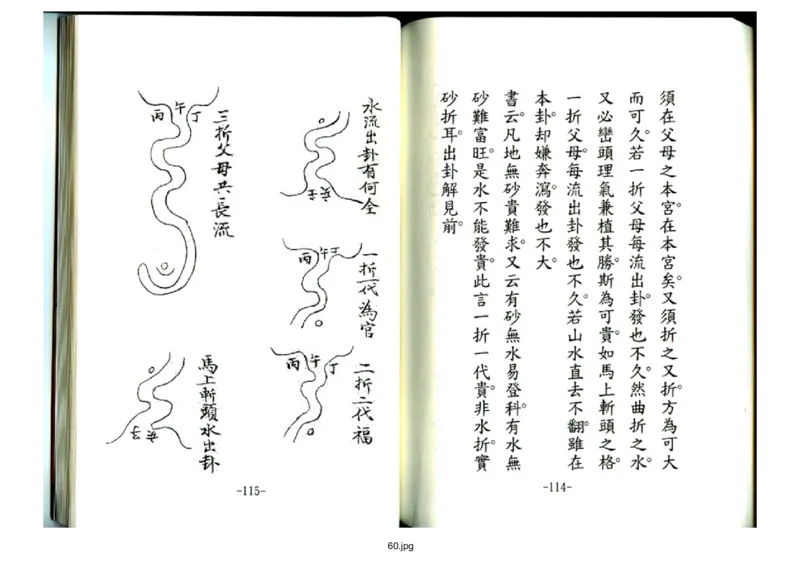 須在父母之本宮。在本宮矣。又須折之又折。方為可大
而可久。若一折父母每流出卦。發也不久。然曲折之水。
又必巒頭理氣兼植其勝。斯為可貴。如馬上斬頭之格。
一折父母。每流出卦發也不久。若山水直去不翻。雖在
本卦。却嫌奔瀉。發也不大。
書云。凡地無砂貴難求。又云有砂無水易登科。有水無
砂難富旺。是水不能發貴。此言一折一代貴。非水折。實
砂折耳。出卦解見前。
-114-
水流出卦有何全
壬 癸
一折一代為官
丙 午 丁
二折二代福
丙 午 丁
三折父母共長流
丙 午 丁
馬上斬頭水出卦
壬 癸
-115-
60.jpg